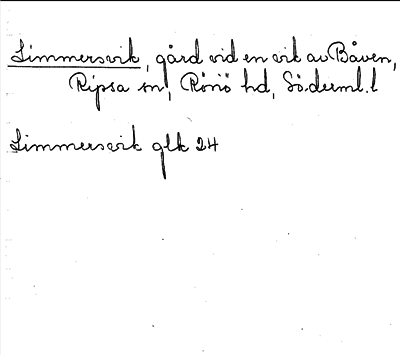 Limmersvik, gård vid en vik av Båven,
Ripsa sn, Rönö hd, Söderml. l
Limmersvik glk 24